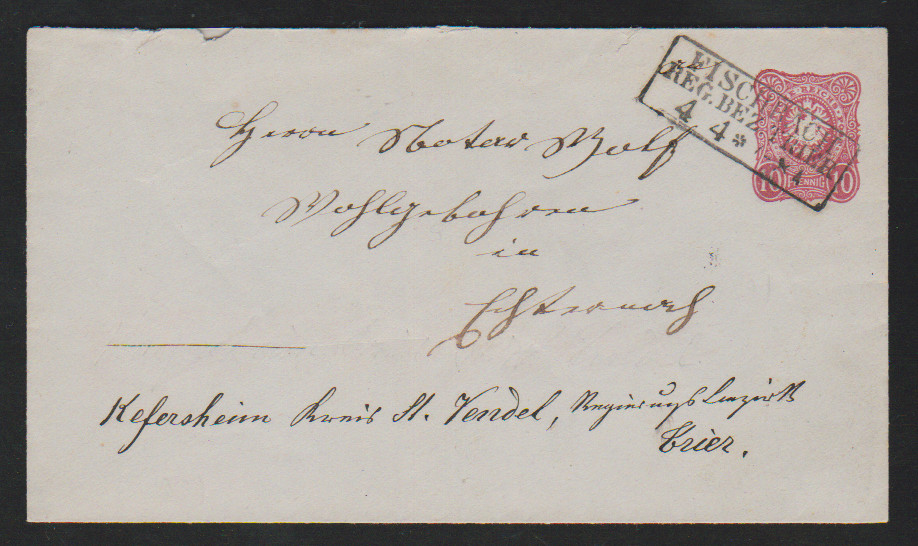 FISCHBACH
REG. BEZ. TRIER
4 4 *
REICHS
10 PFENNIG 10
Herrn Notar Wolf
Wohlgebohren
in
Echternach
Kefersheim Kreis St. Vendel, Regierungsbezirk
Trier.